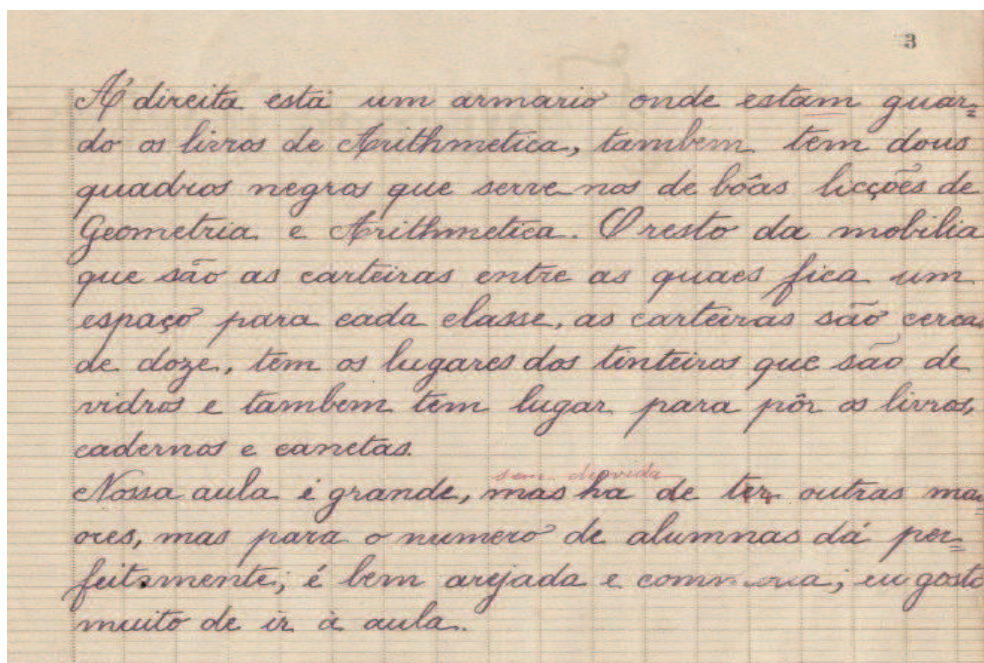 3
Á direita está um armario onde estam guar=
do os livros de Arithmetica, tambem tem dous
quadros negros que serve-nos de bôas licções de
Geometria e Arithmetica. O resto da mobilia
que são as carteiras entre as quaes fica um
espaço para cada classe, as carteiras são cerca
de doze, têm os lugares dos tinteiros que são de
vidros e tambem têm lugar para pôr os livros,
cadernos e canetas.
sem duvida
Nossa aula é grande, mas ha de ter outras mai=
ores, mas para o numero de alumnas dá per=
feitamente; é bem arejada e; eu gosto
muito de ir á aula.